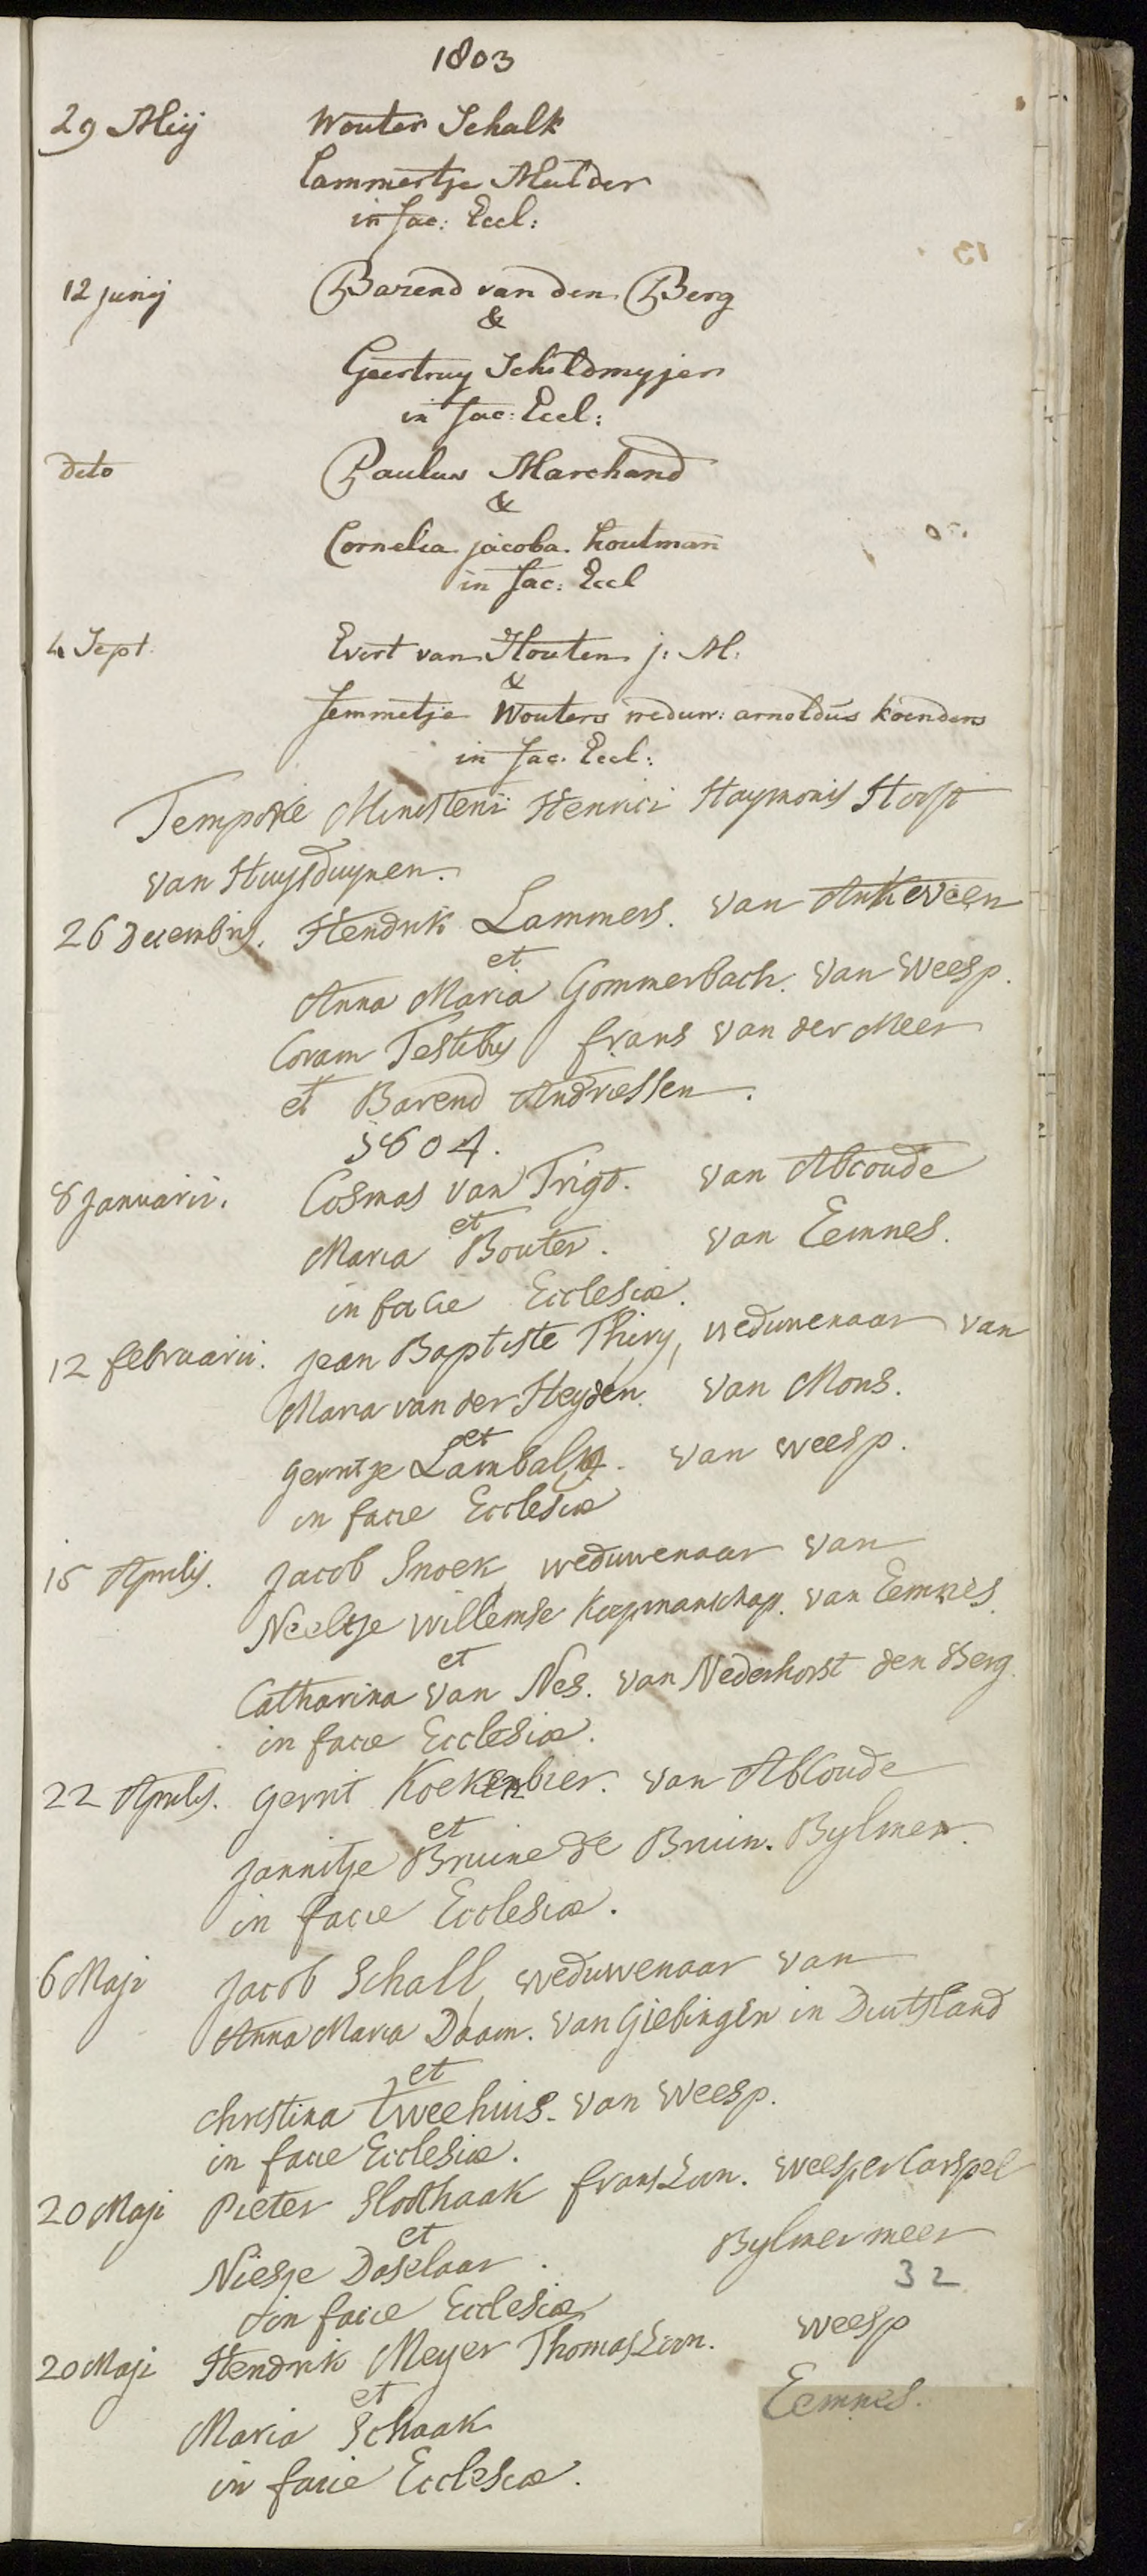 1803
29 Meij Wouter Schalk
Lammertje Mulder
in fac: Eccl:
12 junij Barend van den Berg
&
Geertruy Schildmyjer
in fac: Eccl:
dito Paulus Marchand
&
Cornelia jacoba houtman
in fac: Eccl
4 Sept. Evert van Houten j: M:
&
Jemmetje Wouters weduw: arnoldus koenders
in fac. Eccl:
Tempore Ministerii Henrici Haymonis Horst
van Huysduynen.
26 Decembris. Hendrik Lammers. van Ankeveen
et
Anna Maria Gommerbach. van Weesp.
Coram Testibus frans van der Meer
et Barend Andriessen.
1804.
8 Januarii. Cosmas van Trigt. van Abcoude
et
Maria Bouter. van Eemnes.
in facie Ecclesiæ.
12 februarii. jean Baptiste Thiry, weduwenaar van
Maria van der Heyden. van Mons.
et
gerritje Lambalk. van weesp.
in facie Ecclesiæ
15 Aprilis. Jacob Snoek, weduwenaar van
Neeltje willemse Koopmanschap. van Eemnes.
et
Catharina van Nes. van Nederhorst den Berg.
in facie Ecclesiæ.
22 Aprilis. gerrit Koekenbier. van Abcoude
et
jannitje Bruine de Bruin. Bylmer.
in facie Ecclesiæ.
6 Maji Jacob Schall, weduwenaar van
Anna Maria Daam. van Giebingen in Duitsland
et
christina Tweehuis. van Weesp.
in facie Ecclesiæ.
20 Maji Pieter Slothaak franszoon. weesper Carspel
et
Niesje Daselaar. Bylmermeer
32
in facie Ecclesiæ
20 Maji Hendrik Meyer Thomaszoon. weesp
et
Maria Schaak Eemnes.
in facie Ecclesiæ.